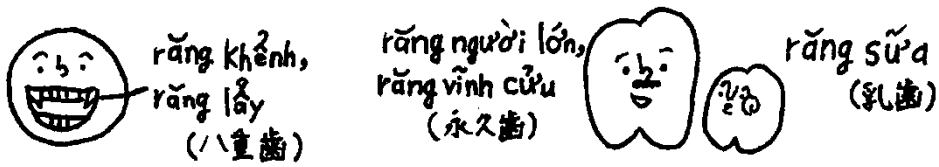 răng khểnh,
răng lẫy
(八重歯)
răng người lớn,
răng vĩnh cửu
(永久歯)
răng sữa
(乳歯)